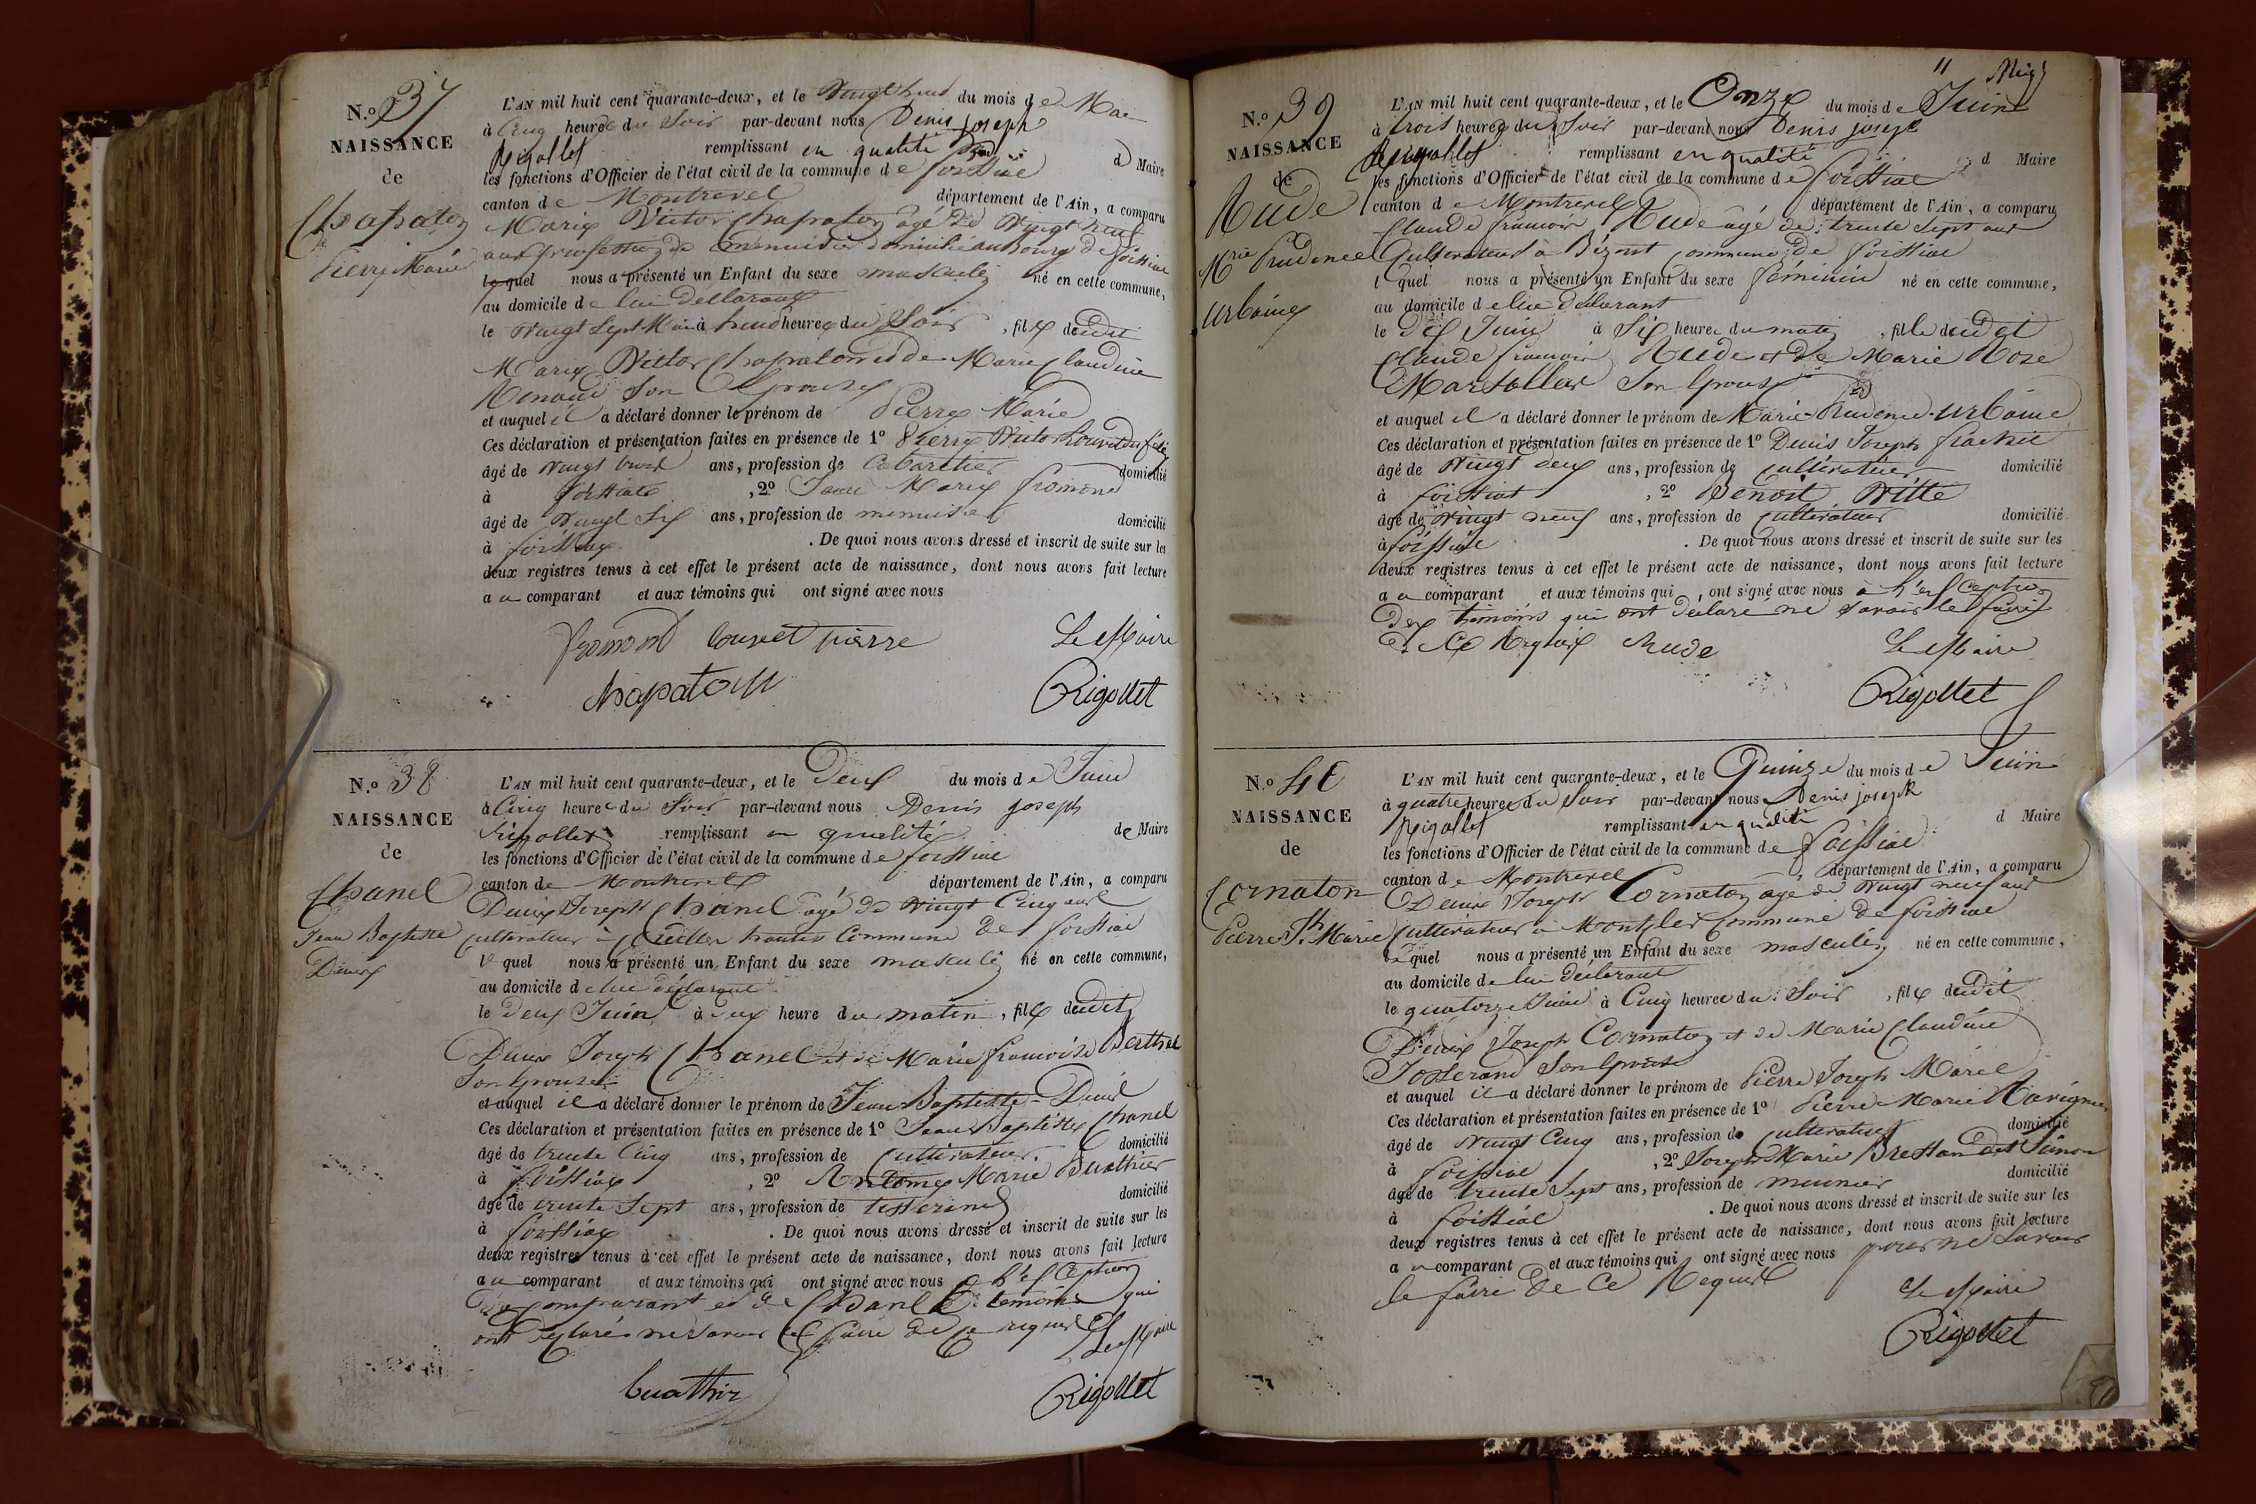 N.o 37
NAISSANCE
de
Chapaton
Pierre Marie
L'AN mil huit cent quarante-deux, et le Vingt huit du mois de Mai
à Cinq heure du Soir par-devant nous Denis joseph
Rigollet remplissant en qualité d Maire
les fonctions d'Officier de l'état civil de la commune de foissiat
canton de Montrevel département de l'Ain, a comparu
Marie Victor Chapaton agé de Vingt neuf
ans profession de menuisier domicilié au Bourg de foissiat
lequel nous a présenté un Enfant du sexe masculin né en cette commune,
au domicile de lui déclarant
le Vingt Sept Mai à heure du Soir, fils dudit
Marie Victor Chapaton et de Marie Claudine
Renaud Son Epouse
et auquel il a déclaré donner le prénom de Pierre Marie
Ces déclaration et présentation faites en présence de 1o Pierre Victor Louvet
âgé de Vingt ans, profession de Cabaretier domicilié
à foissiat, 2o Marie fromond
âgé de Vingt Six ans, profession de menuisier domicilié
à foissiat. De quoi nous avons dressé et inscrit de suite sur les
deux registres tenus à cet effet le présent acte de naissance, dont nous avons fait lecture
au comparant et aux témoins qui ont signé avec nous
fromond louvet pierre Le Maire
chapaton Rigollet
N.o 38
NAISSANCE
de
Chanel
Jean Baptiste
Denis
L'AN mil huit cent quarante-deux, et le Deux du mois de Juin
à Cinq heure du Soir par-devant nous Denis joseph
Rigollet remplissant en qualité de Maire
les fonctions d'Officier de l'état civil de la commune de foissiat
canton de Montrevel département de l'Ain, a comparu
Denis Joseph Chanel agé de Vingt Cinq ans
Cultivateur à Commune de foissiat
lequel nous a présenté un Enfant du sexe masculin né en cette commune,
au domicile de lui déclarant
le Deux Juin à heure du matin, fils dudit
Denis Joseph Chanel et de Marie francoise Berthet
Son Epouse
et auquel il a déclaré donner le prénom de Jean Baptiste Denis
Ces déclaration et présentation faites en présence de 1o Jean Baptiste Chanel
âgé de trente Cinq ans, profession de Cultivateur domicilié
à foissiat, 2o Antoine Marie Buathier
âgé de trente Sept ans, profession de tisserand domicilié
à foissiat. De quoi nous avons dressé et inscrit de suite sur les
deux registres tenus à cet effet le présent acte de naissance, dont nous avons fait lecture
au comparant et aux témoins qui ont signé avec nous
comparant et de Chanel témoins qui
ont déclaré ne savoir le faire de ce requis Le Maire
buathier Rigollet
11
N.o 39
NAISSANCE
de
Rude
Mrie Prudence
Urbaine
L'AN mil huit cent quarante-deux, et le Onze du mois de Juin
à trois heures du Soir par-devant nous Denis joseph
Rigollet remplissant en qualité d Maire
les fonctions d'Officier de l'état civil de la commune de foissiat
canton de Montrevel département de l'Ain, a comparu
Claude francois Rude agé de trente Sept ans
Cultivateur à Bézont commune de foissiat
lequel nous a présenté un Enfant du sexe féminin né en cette commune,
au domicile de lui déclarant
le Dix Juin à Six heure du matin, fille dudit
Claude francois Rude et de Marie Rose
Marsollat Son Epouse
et auquel il a déclaré donner le prénom de Marie Prudence Urbaine
Ces déclaration et présentation faites en présence de 1o Denis Joseph
âgé de Vingt deux ans, profession de Cultivateur domicilié
à foissiat, 2o Benoit Vitte
âgé de Vingt neuf ans, profession de Cultivateur domicilié
à foissiat. De quoi nous avons dressé et inscrit de suite sur les
deux registres tenus à cet effet le présent acte de naissance, dont nous avons fait lecture
au comparant et aux témoins qui, ont signé avec nous à l'exception
des témoins qui ont déclaré ne savoir le faire
de Ce Requis Rude Le Maire
Rigollet
N.o 40
NAISSANCE
de
Cornaton
Pierre Jh Marie
L'AN mil huit cent quarante-deux, et le Quinze du mois de Juin
à quatre heures du Soir par-devant nous Denis joseph
Rigollet remplissant en qualité d Maire
les fonctions d'Officier de l'état civil de la commune de foissiat
canton de Montrevel département de l'Ain, a comparu
Denis Joseph Cornaton agé de Vingt neuf ans
Cultivateur à Commune de foissiat
lequel nous a présenté un Enfant du sexe masculin né en cette commune,
au domicile de lui déclarant
le quatorze Juin à Cinq heures du Soir, fils dudit
Denis Joseph Cornaton et de Marie Claudine
Josserand Son Epouse
et auquel il a déclaré donner le prénom de Pierre Joseph Marie
Ces déclaration et présentation faites en présence de 1o Pierre Marie
âgé de Vingt Cinq ans, profession de Cultivateur domicilié
à foissiat, 2o Joseph Marie
âgé de trente Sept ans, profession de meunier domicilié
à foissiat. De quoi nous avons dressé et inscrit de suite sur les
deux registres tenus à cet effet le présent acte de naissance, dont nous avons fait lecture
au comparant et aux témoins qui ont signé avec nous pour ne savoir
le faire de Ce Requis Le Maire
Rigollet